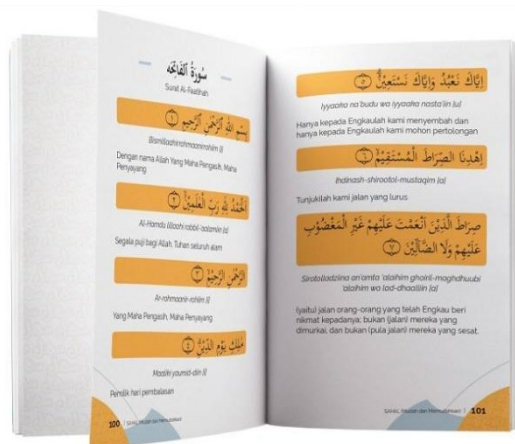 سُورَةُ ٱلْفَاتِحَة
Surat Al-Faatihah
بِسْمِ اللّٰهِ الرَّحْمٰنِ الرَّحِيْمِ ۝١
Bismillaahirrohmaanirrohiim (i)
Dengan nama Allah Yang Maha Pengasih, Maha
Penyayang
اَلْحَمْدُ لِلّٰهِ رَبِّ الْعٰلَمِيْنَ ۝٢
Al-Hamdu lillaahi robbil-'aalamiin (a)
Segala puji bagi Allah, Tuhan seluruh alam
الرَّحْمٰنِ الرَّحِيْمِ ۝٣
Ar-rohmaanir-rohiim (i)
Yang Maha Pengasih, Maha Penyayang
مٰلِكِ يَوْمِ الدِّيْنِ ۝٤
Maaliki yaumid-diin (i)
Pemilik hari pembalasan
100 / SAHIH, Mudah dan Memudahkan!
اِيَّاكَ نَعْبُدُ وَاِيَّاكَ نَسْتَعِيْنُ ۝٥
Iyyaaka na'budu wa iyyaaka nasta'iin (u)
Hanya kepada Engkaulah kami menyembah dan
hanya kepada Engkaulah kami mohon pertolongan
اِهْدِنَا الصِّرَاطَ الْمُسْتَقِيْمَ ۝٦
Ihdinash-shirootol-mustaqiim (a)
Tunjukilah kami jalan yang lurus
صِرَاطَ الَّذِيْنَ اَنْعَمْتَ عَلَيْهِمْ غَيْرِ الْمَغْضُوْبِ
عَلَيْهِمْ وَلَا الضَّاۤلِّيْنَ ۝٧
Sirotolladziina an'amta 'alaihim ghoiril-maghdhuubi
'alaihim wa lad-dhaalliin (a)
(yaitu) jalan orang-orang yang telah Engkau beri
nikmat kepadanya; bukan (jalan) mereka yang
dimurkai, dan bukan (pula jalan) mereka yang sesat.
SAHIH, Mudah dan Memudahkan! / 101